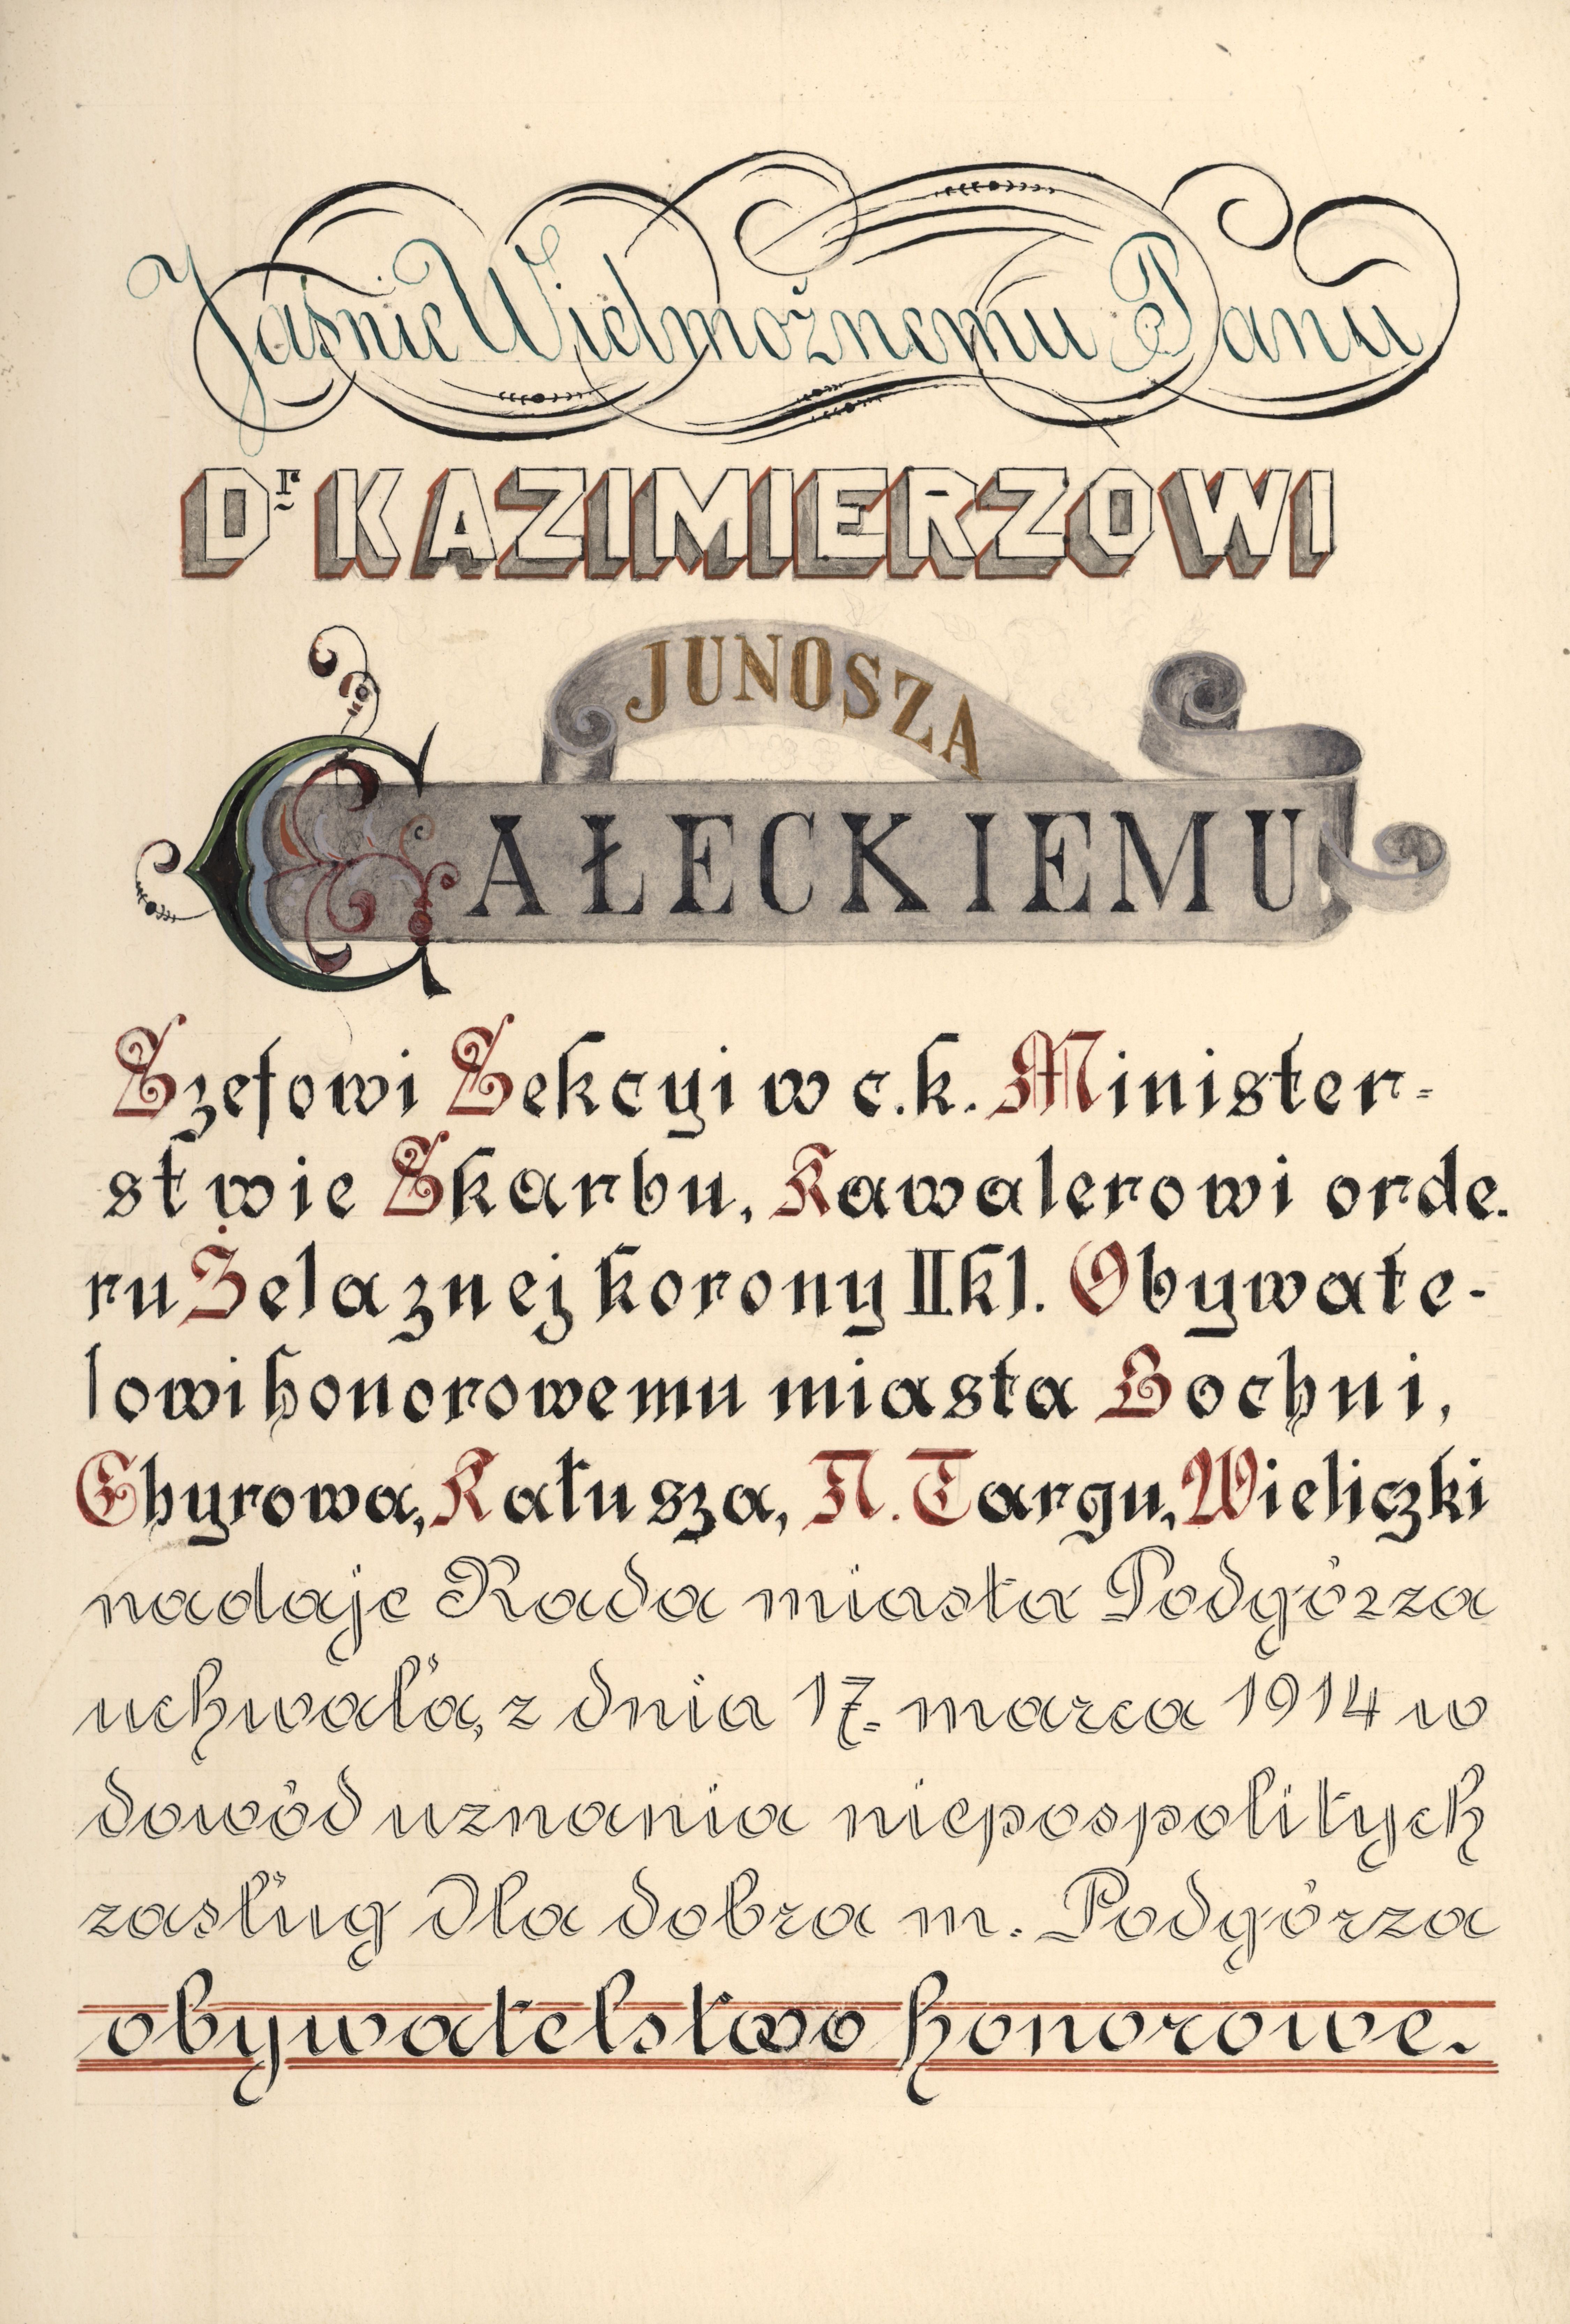 Jaśnie Wielmożnemu Panu
Dr KAZIMIERZOWI
JUNOSZA
GAŁECKIEMU
Szefowi Sekcyi w c.k. Minister-
stwie Skarbu, Kawalerowi orde.
ru Żelaznej korony II kl. Obywate-
lowi honorowemu miasta Bochni,
Chyrowa, Kałusza, N. Targu, Wieliczki
nadaje Rada miasta Podgórza
uchwałą z dnia 17. marca 1914 w
dowód uznania niepospolitych
zasług dla dobra m. Podgórza
obywatelstwo honorowe.